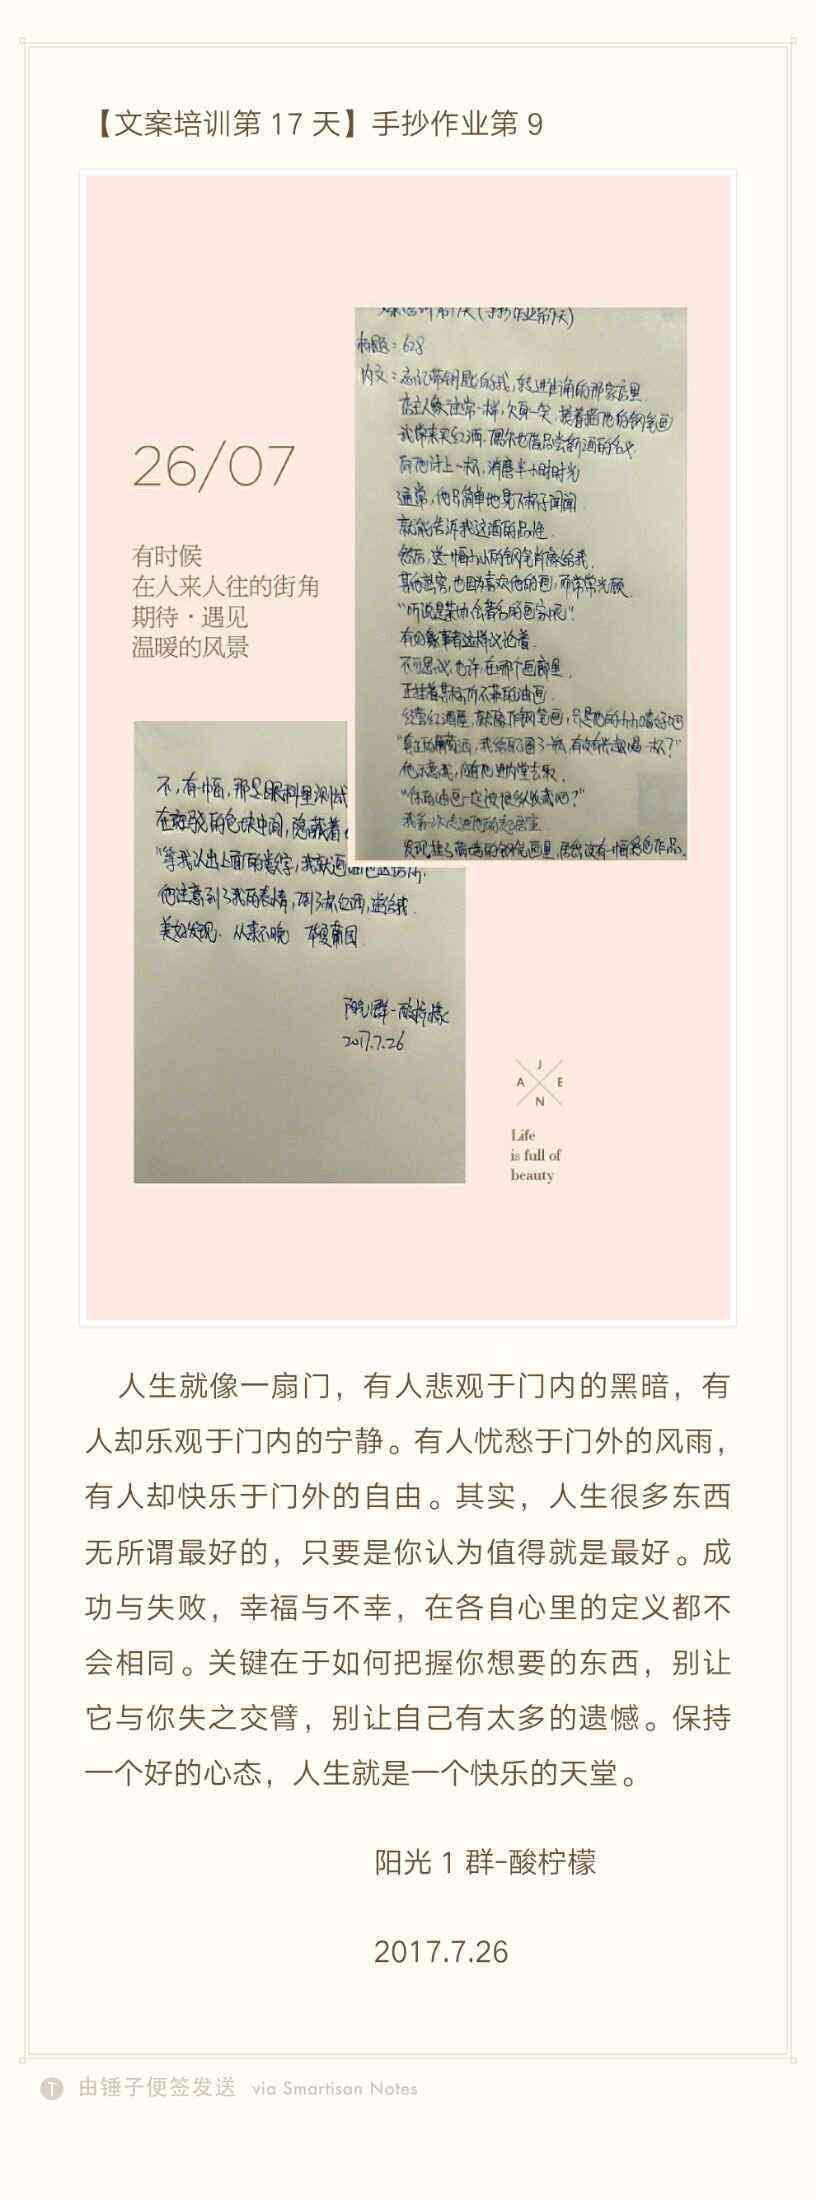 【文案培训第 17 天】手抄作业第 9
26/07
有时候
在人来人往的街角
期待·遇见
温暖的风景
标题：628
内文：忘记带钥匙的我，转进街角的那家店里
店主人像往常一样，欠身一笑，接着描他的钢笔画
我常来买红酒，偶尔也借品尝新酒的名义
向他讨上一杯，消磨半小时时光
通常，他只简单地晃下杯子闻闻
就能告诉我这酒的品性
然后，送一幅小小的钢笔肖像给我
其他客，也因为喜欢他的画，而常常光顾
“听说是某协会著名的画家呢”
有好事者这样议论着
不可思议，也许，在哪个画廊里
正挂着某标价不菲的油画
经营红酒屋，顺便作钢笔画，只是他的小小嗜好吧
他示意我，随他进内堂去取
“你的油画一定被很多人收藏吧？”
我第一次走进他的起居室
发现挂了满墙的钢笔画里，居然没有一幅彩色作品
不，有一幅，那是眼科里测试
在斑驳的色块中间，隐藏着
“等我认出上面的数字，我就画油画
他注意到了我的表情，倒了杯红酒，递给我
美好发现·从来不晚 华夏葡园
阳光1群-酸柠檬
2017.7.26
J
A E
N
Life
is full of
beauty
人生就像一扇门，有人悲观于门内的黑暗，有
人却乐观于门内的宁静。有人忧愁于门外的风雨，
有人却快乐于门外的自由。其实，人生很多东西
无所谓最好的，只要是你认为值得就是最好。成
功与失败，幸福与不幸，在各自心里的定义都不
会相同。关键在于如何把握你想要的东西，别让
它与你失之交臂，别让自己有太多的遗憾。保持
一个好的心态，人生就是一个快乐的天堂。
阳光 1 群-酸柠檬
2017.7.26
由锤子便签发送 via Smartisan Notes